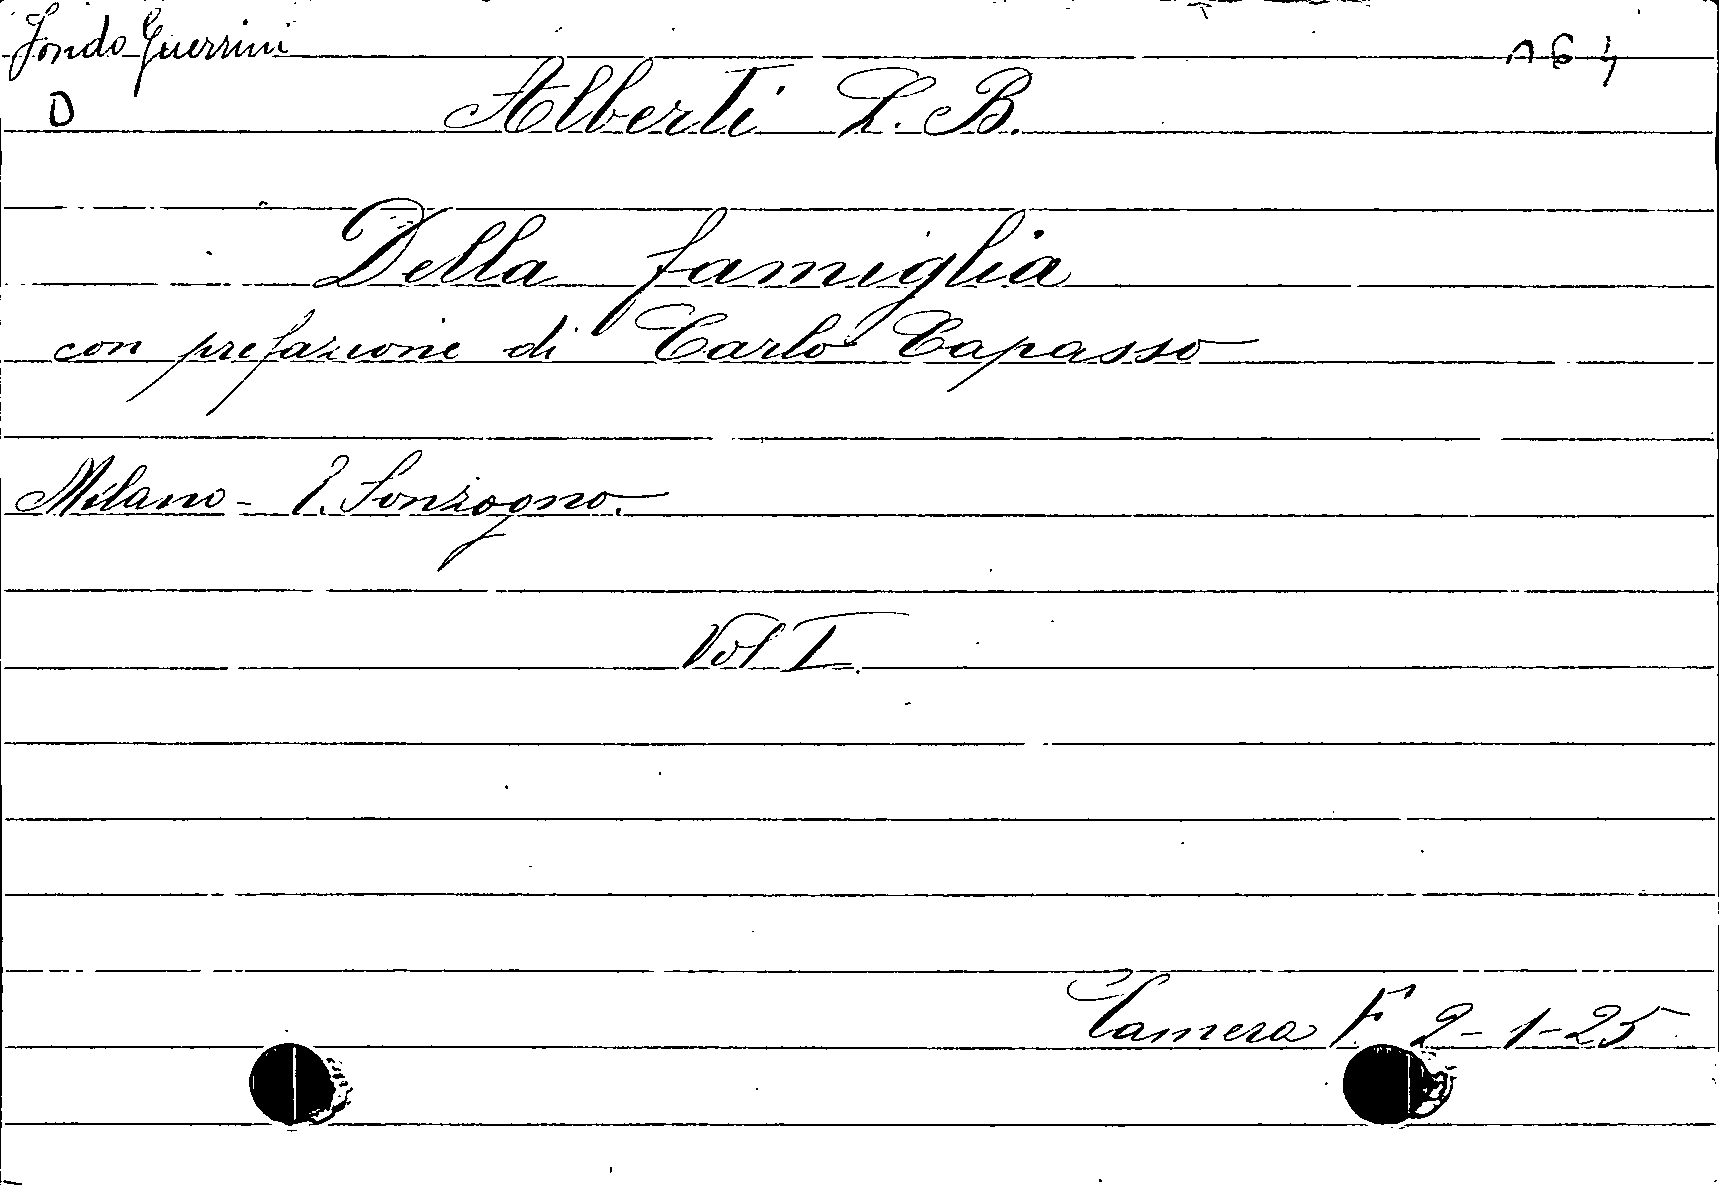 Fondo Guerrini
D
Alberti L. B.
Della famiglia
con prefazione di Carlo Capasso
Milano - Sonzogno.
Vol I.
Camera F 2-1-25